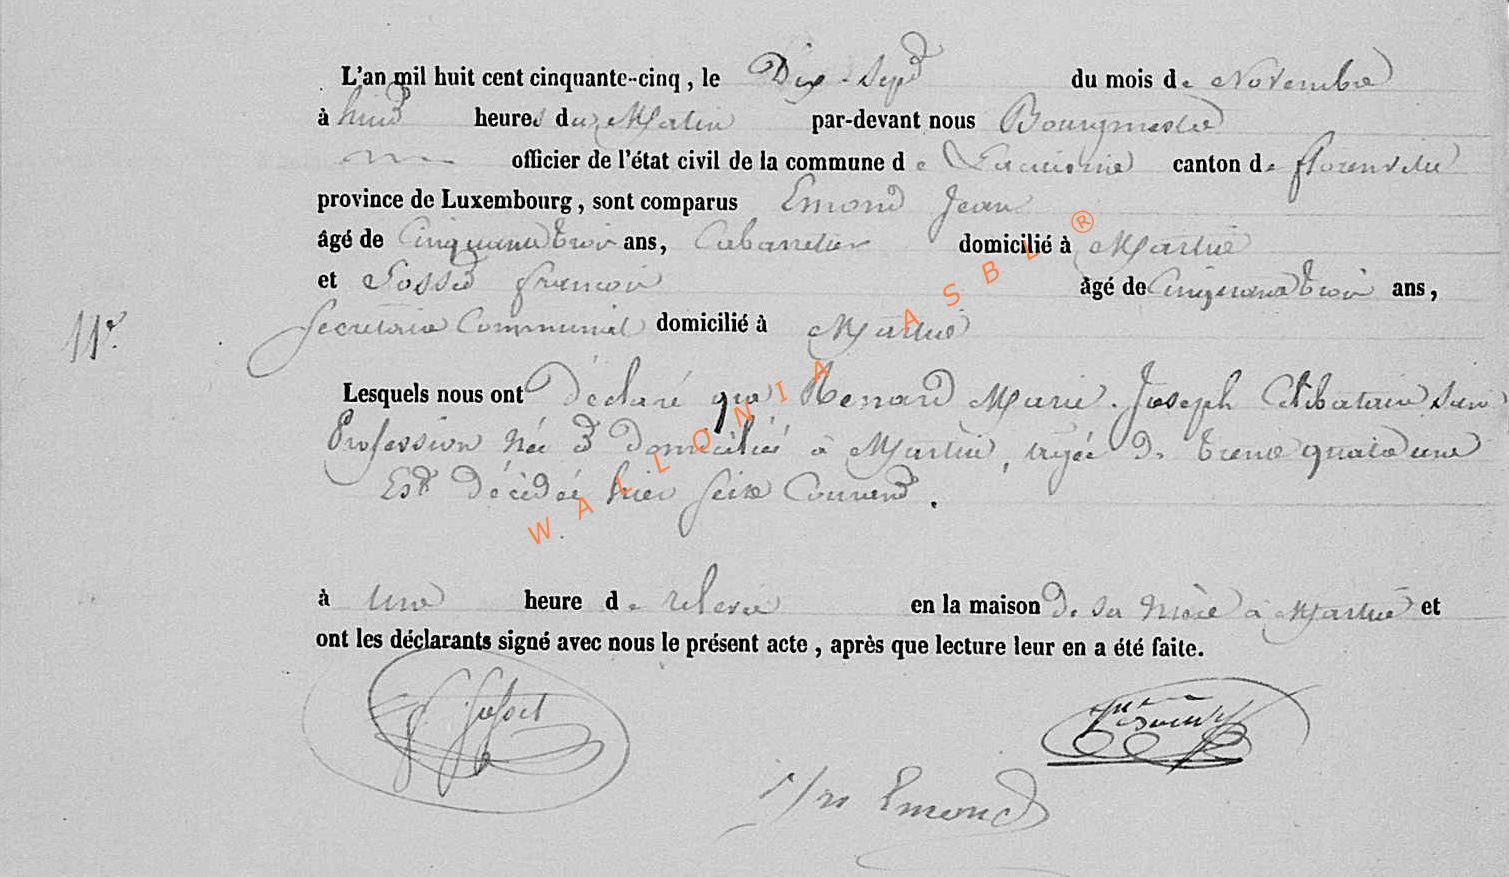 L'an mil huit cent cinquante-cinq, le Dix-Sept du mois de Novembre
à huit heures du Matin par-devant nous Bourgmestre
officier de l'état civil de la commune de canton de florenville
province de Luxembourg, sont comparus Emond Jean
âgé de Cinquante trois ans, Cabaretier domicilié à Martué
et françois âgé de Cinquante trois ans,
Secretaire Communal domicilié à Martué
11e.
Lesquels nous ont Déclaré que Renard Marie. Joseph Célibataire sans
Profession née et domiciliée à Martué, agée de trente quatre ans
Est décédée hier seize Courent.
à une heure de relevée en la maison de sa mère à Martué et
ont les déclarants signé avec nous le présent acte, après que lecture leur en a été faite.
Emond
WALLONIA ASBL ®